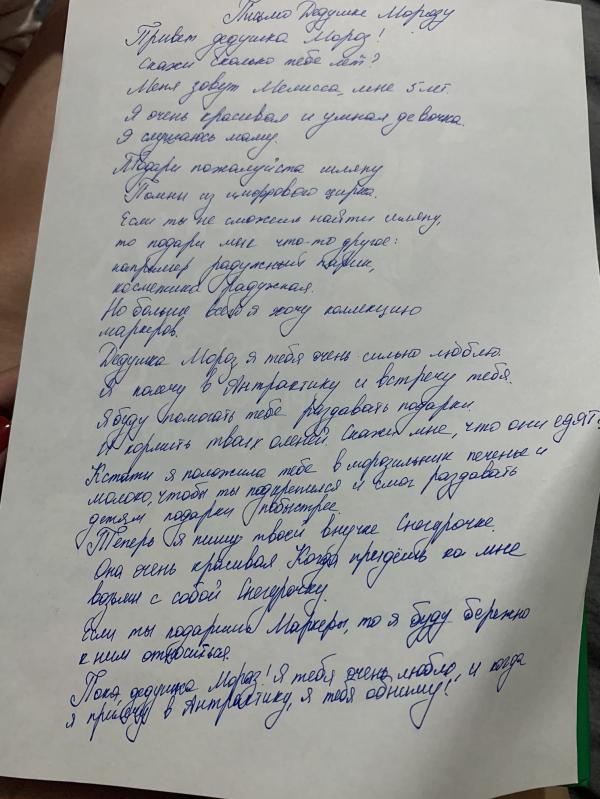 Письмо Дедушке Морозу
Привет дедушка Мороз!
Скажи сколько тебе лет?
Меня зовут Мелисса, мне 5 лет.
Я очень красивая и умная девочка.
Я слушаюсь маму.
Подари пожалуйста шляпу
Помни из цифрового цирка.
Если ты не сможешь найти шляпу,
то подари мне что-то другое:
например радужный парик,
косметика радужная.
Но больше всего я хочу коллекцию
маркеров.
Дедушка Мороз я тебя очень сильно люблю.
Я полечу в Антрактику и встречу тебя.
Я буду помогать тебе раздавать подарки.
И кормить твоих оленей. Скажи мне, что они едят?
Кстати я положила тебе в морозильник печенье и
молоко, чтобы ты подкрепился и смог раздавать
детям подарки побыстрее.
Теперь я пишу твоей внучке Снегурочке.
Она очень красивая Когда приедешь ко мне
возьми с собой Снегурочку.
Если ты подаришь Маркеры, то я буду бережно
к ним относиться.
Пока, дедушка Мороз! Я тебя очень люблю, и когда
я приеду в Антрактику, я тебя обниму!